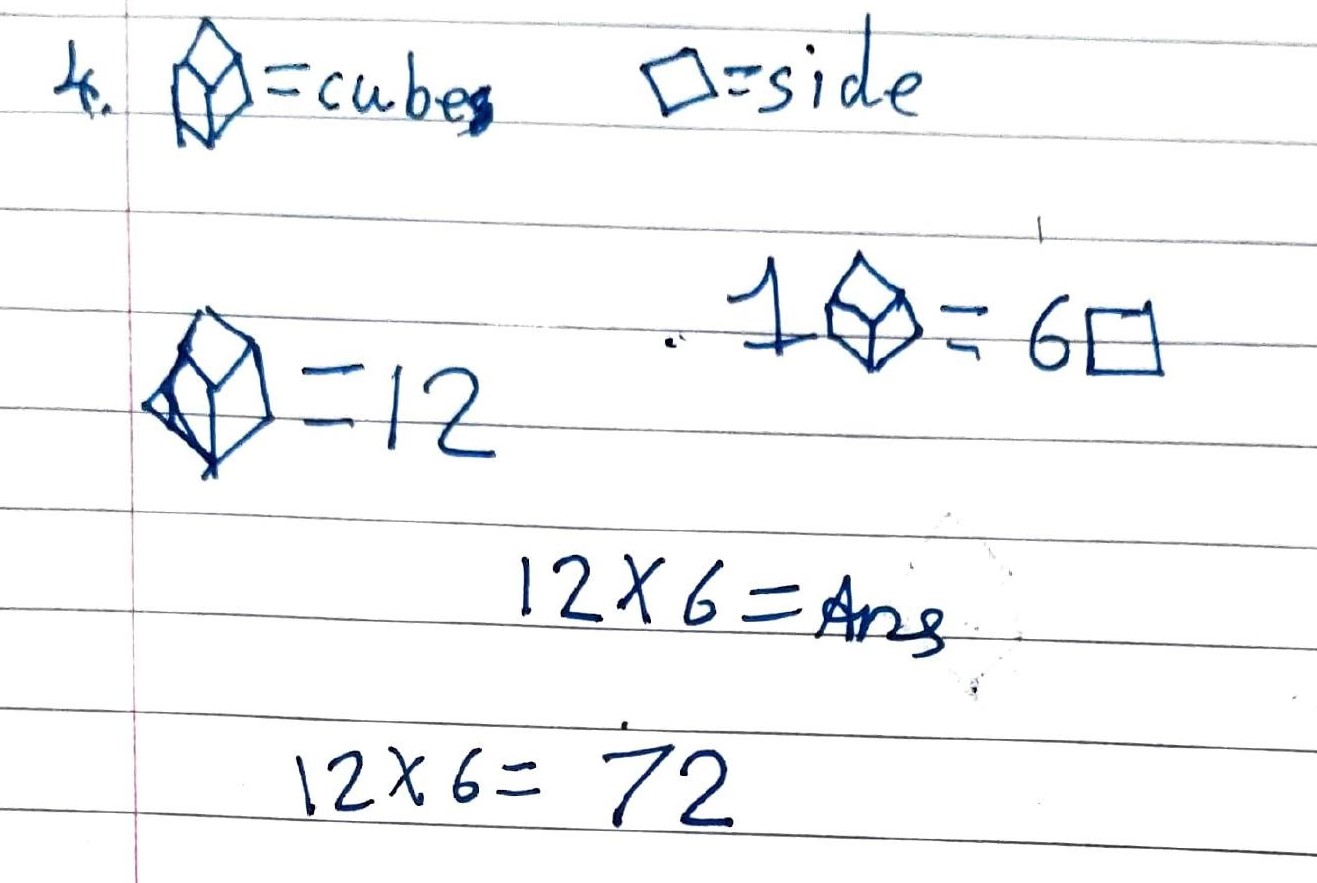 4. = cubes = side
1 = 6
= 12
12 X 6 = Ans
12 X 6 = 72